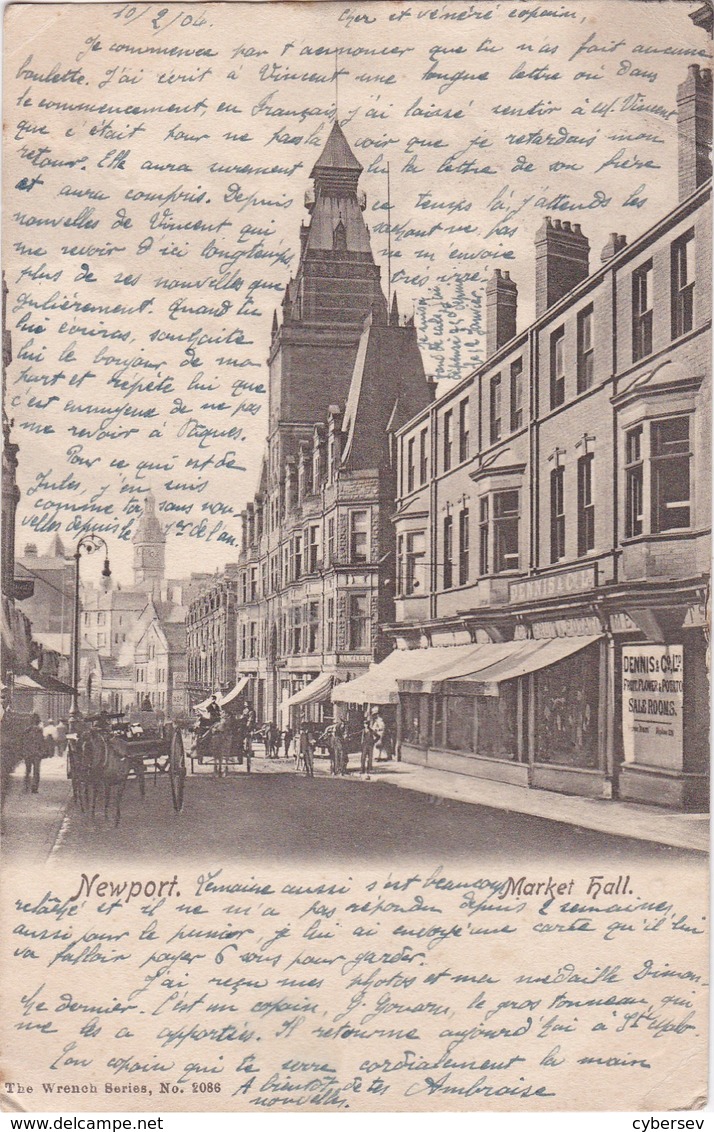 10/2/04. Cher et vénéré copain,
Je commence par t'annoncer que tu n'as fait aucune
boulette. J'ai écrit à Vincent une longue lettre où dans
le commencement, en Français, j'ai laissé sentir à M. Vincent
que c'était pour ne pas la voir que je retardais mon
retour. Elle aura surement lu la lettre de son frère
et aura compris. Depuis ce temps là, j'attends les
nouvelles de Vincent qui sachant ne pas
me revoir d'ici longtemps ne m'envoie
plus de ses nouvelles que très irré-
gulièrement. Quand tu
lui écriras, souhaite
lui le bonjour de ma
part et répète lui que
c'est ennuyeux de ne pas
me revoir à Pâques.
Pour ce qui est de
Jules, j'en suis
comme toi, sans nou-
velles depuis le 1er de l'an.
DENNIS & Co
DENNIS & Co Ld.
FRUIT, FLOWER & POTATO
SALE ROOMS.
Newport. Market Hall.
Temaine aussi s'est beaucoup
relâché et il ne m'a pas répondu depuis 2 semaines
aussi pour le punir je lui ai envoyé une carte qu'il lui
va falloir payer 6 sous pour garder.
J'ai reçu mes photos et ma médaille Diman-
che dernier. C'est un copain, le gros tonneau, qui
me les a apportés. Il retourne aujourd'hui à St Malo.
Ton copain qui te serre cordialement la main
The Wrench Series, No. 2086
A bientôt de tes
nouvelles. Ambroise
cybersev